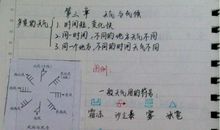 第三章 天气与气候
多变的天气
1. 时间短,变化快
2. 同一时间,不同的地方天气不同
3. 同一地方,不同时间天气不同
图例:
一般天气用的符号:
霜冻 沙尘暴 雾 冰雹